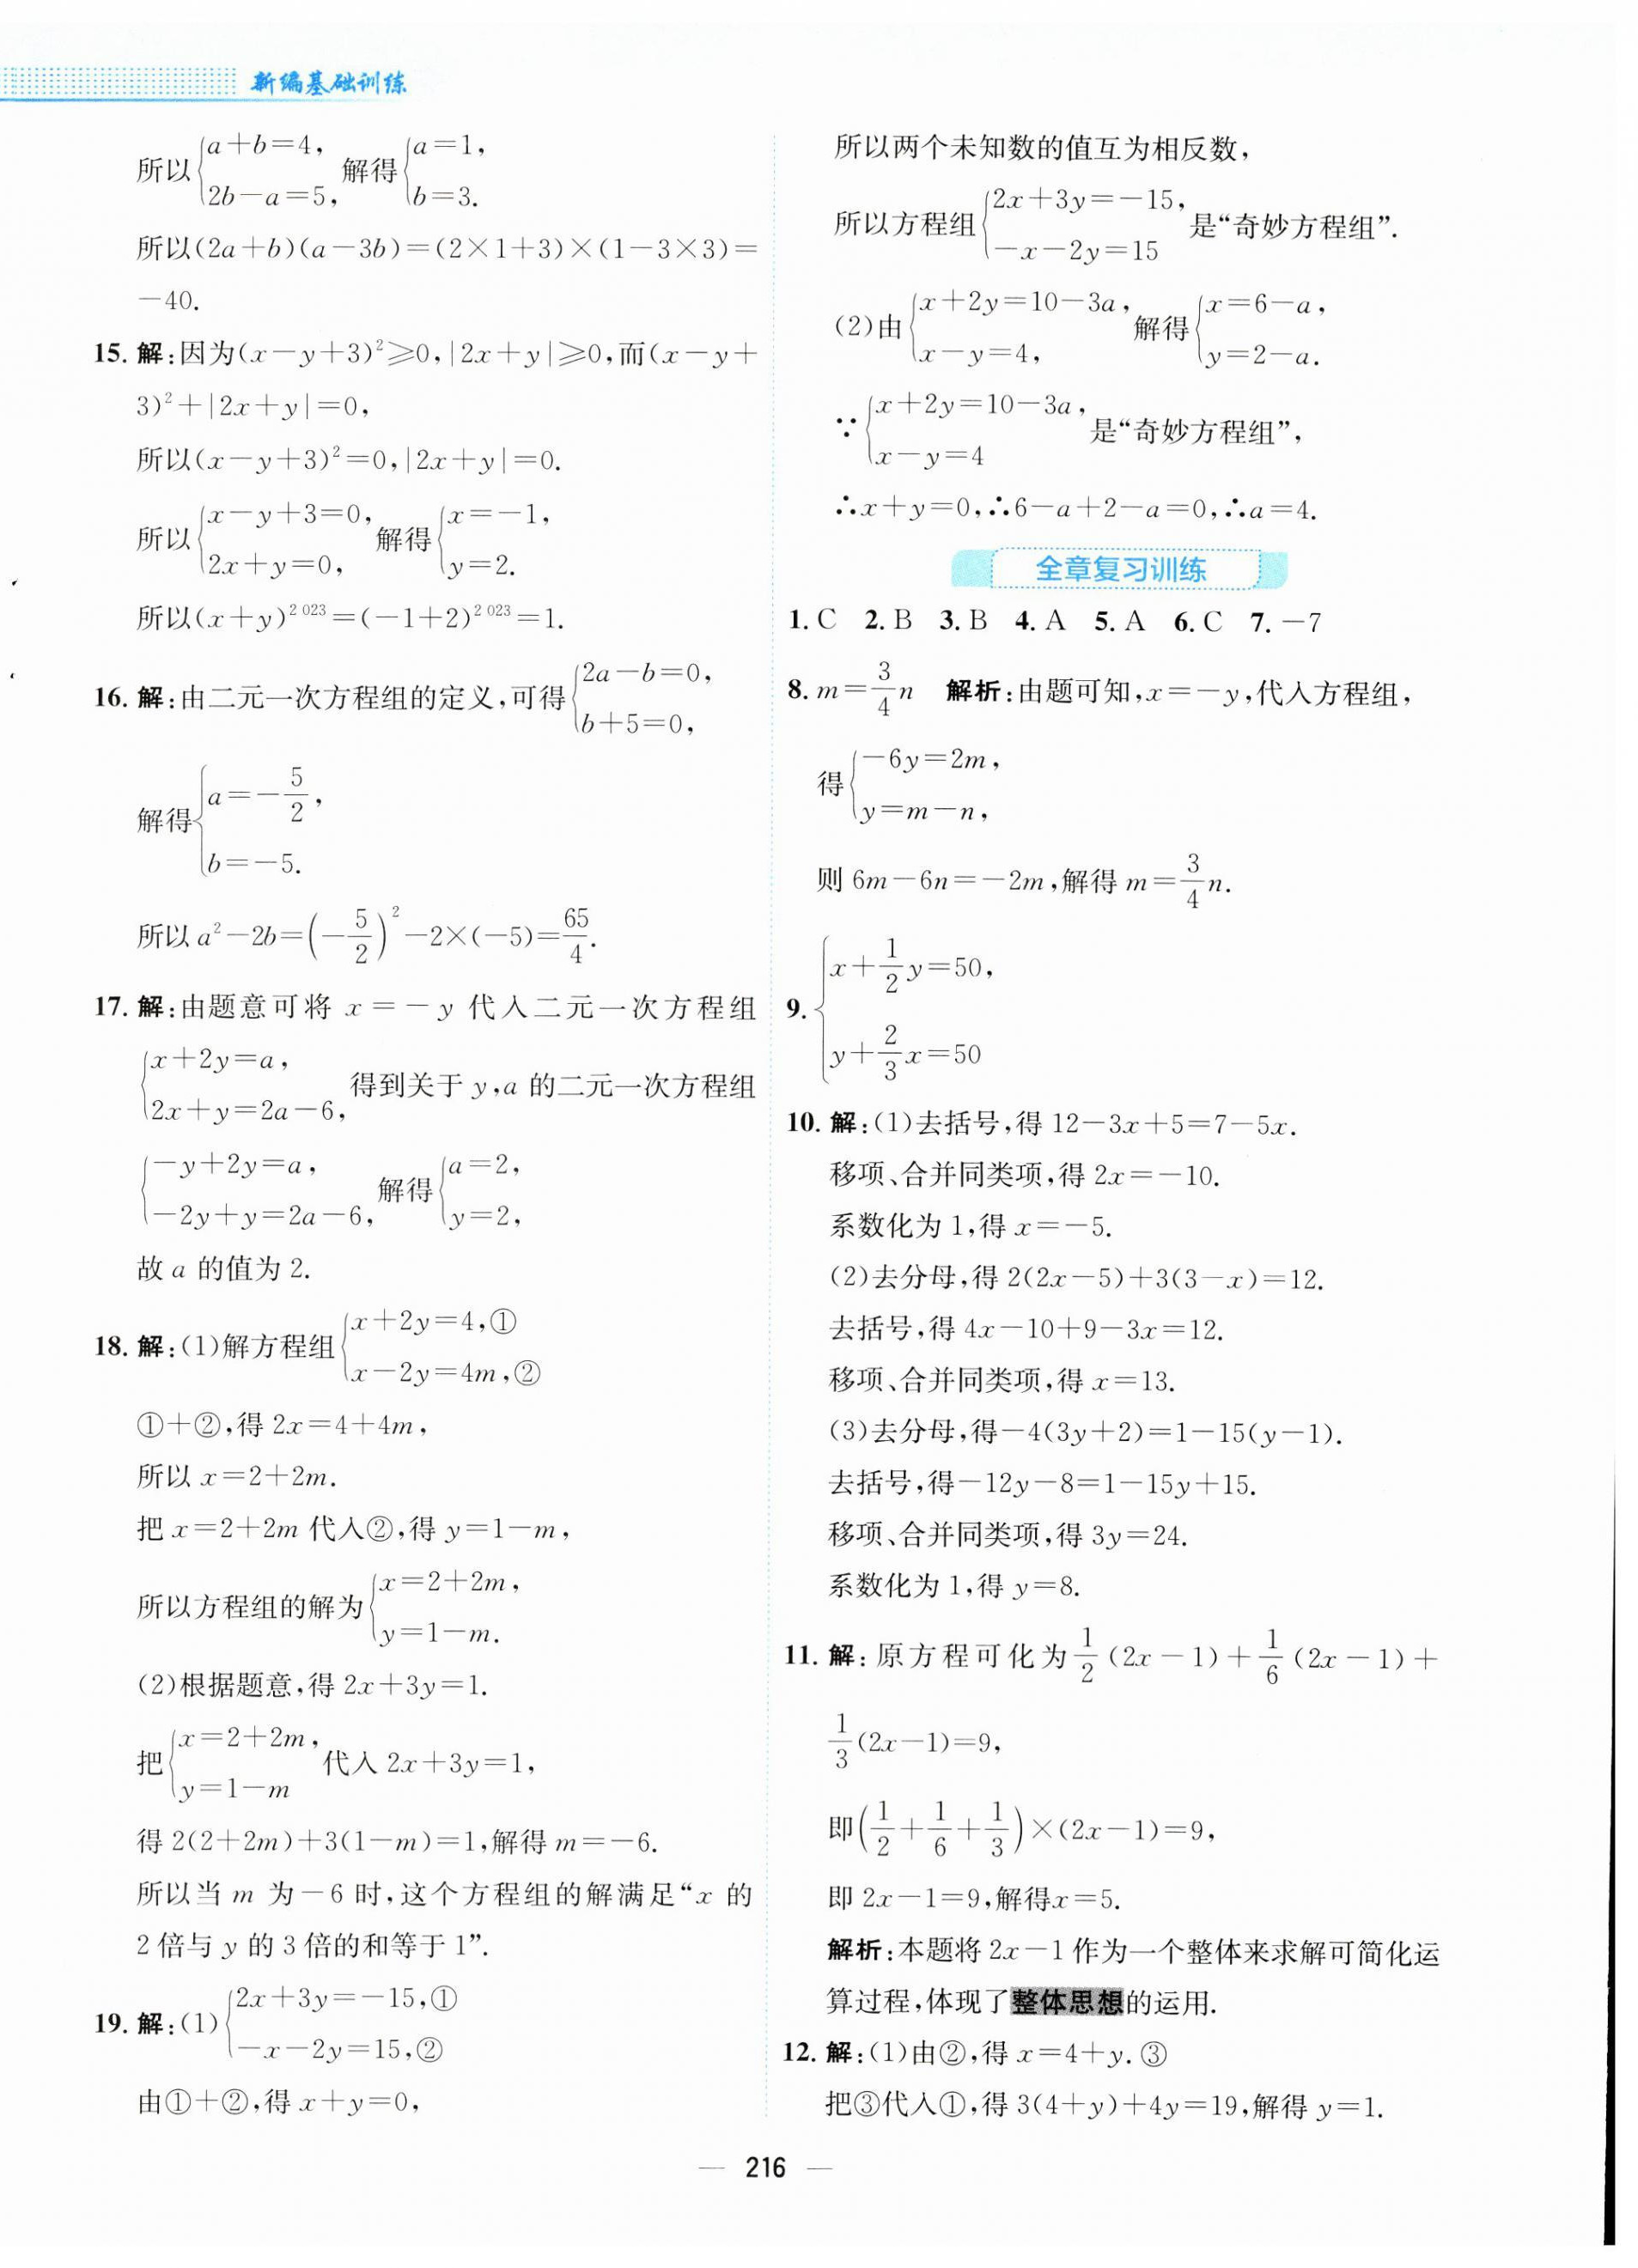 新编基础训练
所以{a+b=4, 2b-a=5, 解得{a=1, b=3.
所以(2a+b)(a-3b)=(2×1+3)×(1-3×3)=
-40.
15. 解:因为(x-y+3)²≥0,|2x+y|≥0,而(x-y+
3)²+|2x+y|=0,
所以(x-y+3)²=0,|2x+y|=0.
所以{x-y+3=0, 2x+y=0, 解得{x=-1, y=2.
所以(x+y)^{2 023}=(-1+2)^{2 023}=1.
16. 解:由二元一次方程组的定义,可得{2a-b=0, b+5=0,
解得{a=-5/2, b=-5.
所以 a²-2b=(-5/2)²-2×(-5)=65/4.
17. 解:由题意可将 x=-y 代入二元一次方程组
{x+2y=a, 2x+y=2a-6, 得到关于 y,a 的二元一次方程组
{-y+2y=a, -2y+y=2a-6, 解得{a=2, y=2,
故 a 的值为 2.
18. 解:(1)解方程组{x+2y=4,① x-2y=4m,②
①+②,得 2x=4+4m,
所以 x=2+2m.
把 x=2+2m 代入②,得 y=1-m,
所以方程组的解为{x=2+2m, y=1-m.
(2)根据题意,得 2x+3y=1.
把{x=2+2m, y=1-m 代入 2x+3y=1,
得 2(2+2m)+3(1-m)=1,解得 m=-6.
所以当 m 为-6 时,这个方程组的解满足“x 的
2 倍与 y 的 3 倍的和等于 1”.
19. 解:(1){2x+3y=-15,① -x-2y=15,②
由①+②,得 x+y=0,
所以两个未知数的值互为相反数,
所以方程组{2x+3y=-15, -x-2y=15 是“奇妙方程组”.
(2)由{x+2y=10-3a, x-y=4, 解得{x=6-a, y=2-a.
∵{x+2y=10-3a, x-y=4 是“奇妙方程组”,
∴x+y=0,∴6-a+2-a=0,∴a=4.
全章复习训练
1. C 2. B 3. B 4. A 5. A 6. C 7. -7
8. m=3/4n 解析:由题可知,x=-y,代入方程组,
得{-6y=2m, y=m-n,
则 6m-6n=-2m,解得 m=3/4n.
9. {x+1/2y=50, y+2/3x=50
10. 解:(1)去括号,得 12-3x+5=7-5x.
移项、合并同类项,得 2x=-10.
系数化为 1,得 x=-5.
(2)去分母,得 2(2x-5)+3(3-x)=12.
去括号,得 4x-10+9-3x=12.
移项、合并同类项,得 x=13.
(3)去分母,得-4(3y+2)=1-15(y-1).
去括号,得-12y-8=1-15y+15.
移项、合并同类项,得 3y=24.
系数化为 1,得 y=8.
11. 解:原方程可化为1/2(2x-1)+1/6(2x-1)+
1/3(2x-1)=9,
即(1/2+1/6+1/3)×(2x-1)=9,
即 2x-1=9,解得x=5.
解析:本题将 2x-1 作为一个整体来求解可简化运
算过程,体现了整体思想的运用.
12. 解:(1)由②,得 x=4+y.③
把③代入①,得 3(4+y)+4y=19,解得 y=1.
— 216 —